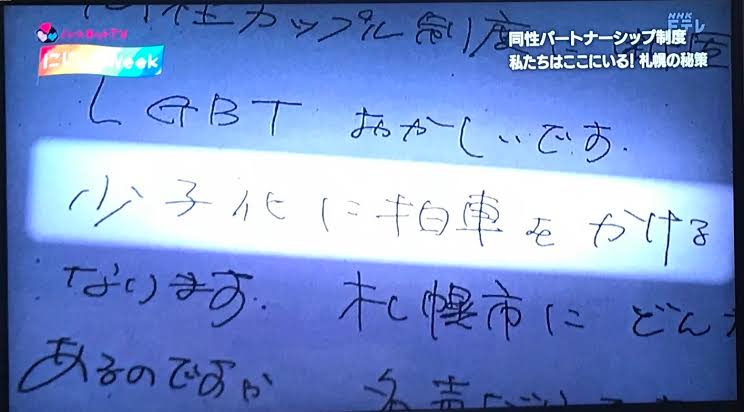 ハートネットTV
Week
NHK
Eテレ
同性パートナーシップ制度
私たちはここにいる! 札幌の秘策
性カップル制度に
LGBT おかしいです.
少子化に拍車をかける
なります. 札幌市に どん
あるのですか